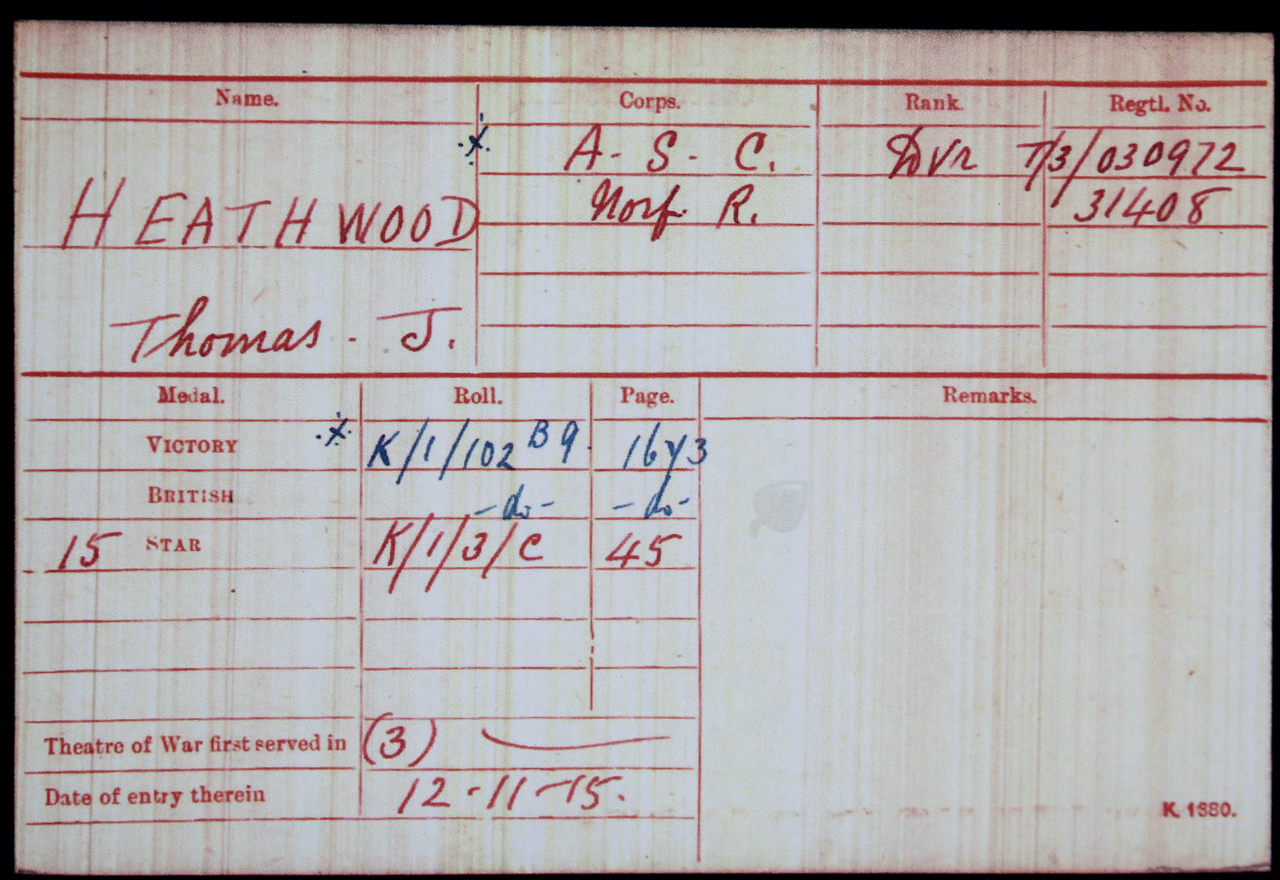 Name. Corps. Rank. Regtl. No.
A- S- C. Dvr T/3/030972
Norf. R. 31408
HEATHWOOD
Thomas. J.
Medal. Roll. Page. Remarks.
VICTORY K/1/102 B9. 16y3
BRITISH -do- -do-
15 STAR K/1/3/C 45
Theatre of War first served in (3)
Date of entry therein 12-11-15.
K. 1880.